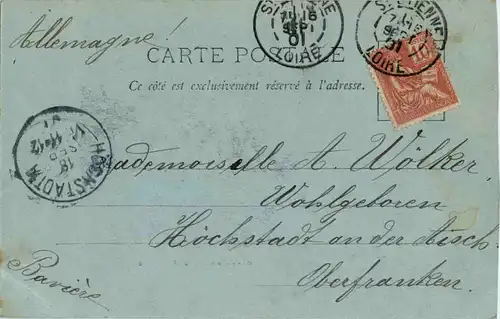 Allemagne!
ST ETIENNE
16
SEPT
01
LOIRE
ST ETIENNE
SEPT
01
LOIRE
CARTE POSTALE
Ce côté est exclusivement réservé à l'adresse.
HÖCHSTADT A.
18
SEP
Mademoiselle A. Wölker.
Wohlgeboren
Höchstadt an der Aisch
Oberfranken.
Bavière